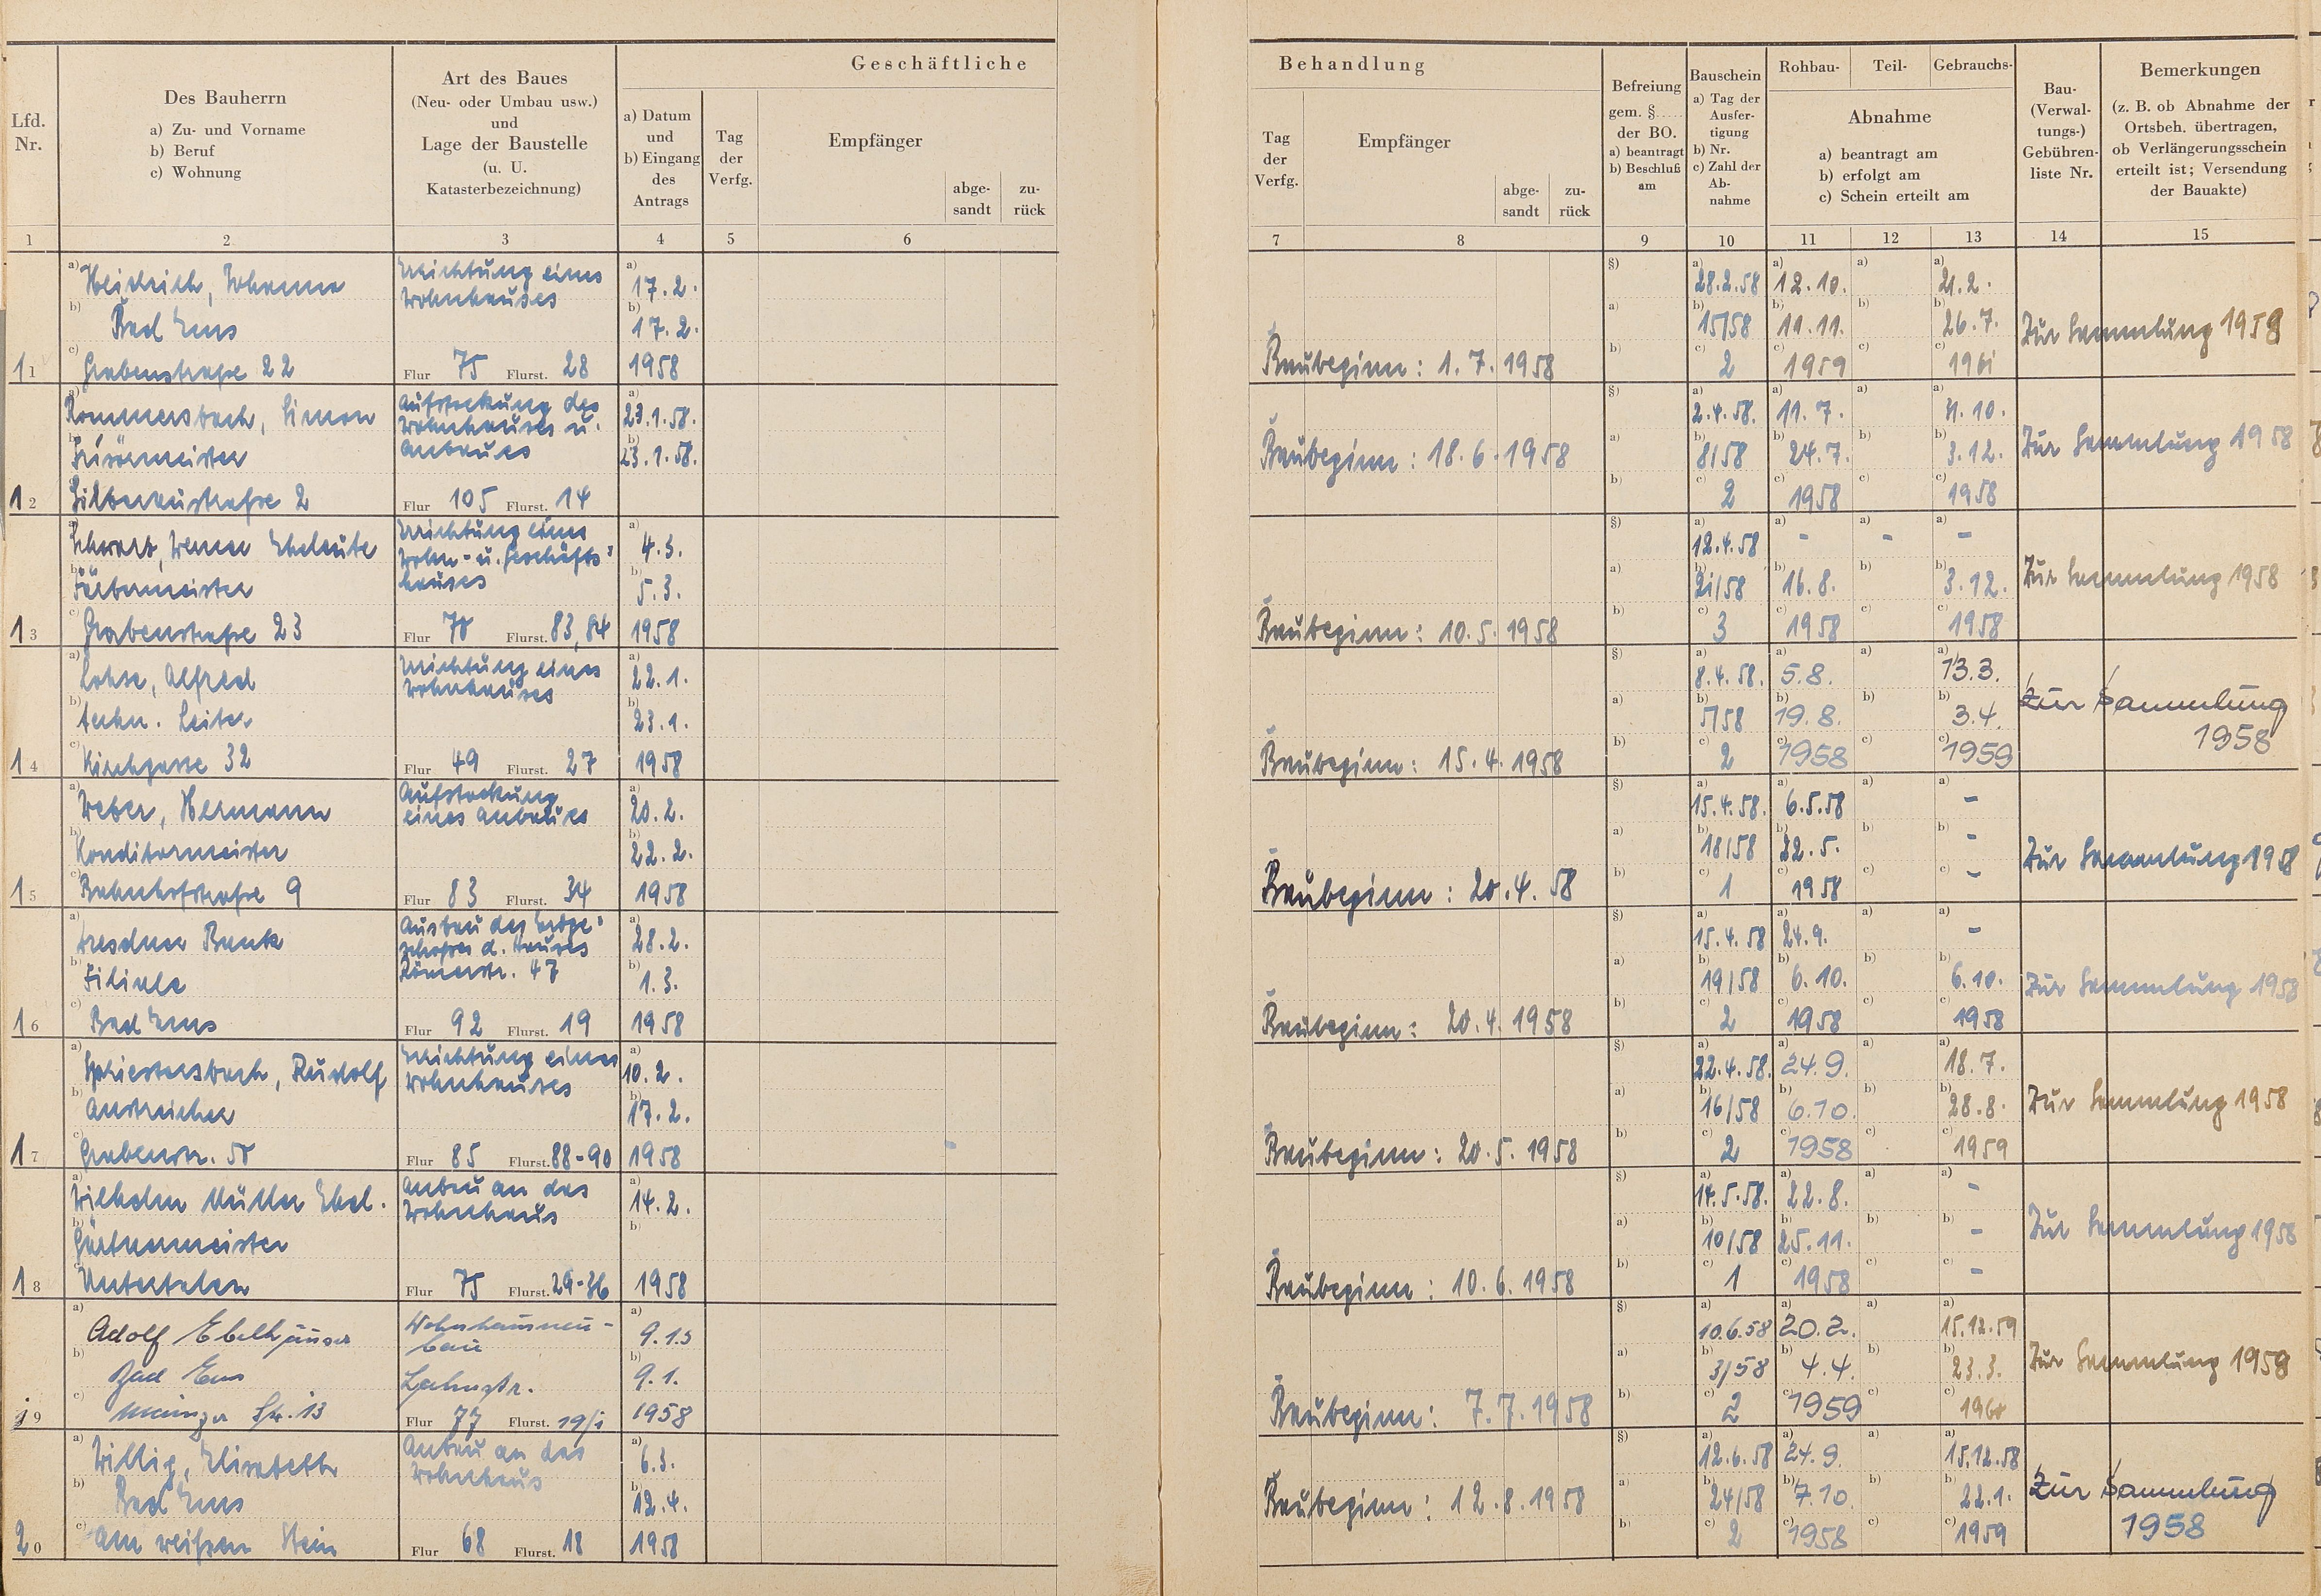 Geschäftliche
Lfd. Nr.
Des Bauherrn
a) Zu- und Vorname
b) Beruf
c) Wohnung
Art des Baues
(Neu- oder Umbau usw.)
und
Lage der Baustelle
(u. U.
Katasterbezeichnung)
a) Datum
und
b) Eingang
des
Antrags
Tag
der
Verfg.
Empfänger
abge-
sandt
zu-
rück
1 2 3 4 5 6
a) Heidrich, Johanna
Errichtung eines
Wohnhauses
a) 17.2.
b) Bad Ems
b) 17.2.
11 c) Grabenstraße 22 Flur 75 Flurst. 28 1958
a) Rommersbach, Simon
Aufstockung des
Wohnhauses u.
Anbaues
a) 23.1.58.
b) Frisörmeister
b) 23.1.58.
12 Silberaustraße 2 Flur 105 Flurst. 14
a) Schwarz, Werner Eheleute
Errichtung eines
Wohn- u. Geschäfts=
hauses
a) 4.3.
b) Färbermeister
b) 5.3.
13 c) Grabenstraße 23 Flur 70 Flurst. 83, 84 1958
a) Lohse, Alfred
Errichtung eines
Wohnhauses
a) 22.1.
b) techn. Leiter
b) 23.1.
14 c) Kirchgasse 32 Flur 49 Flurst. 27 1958
a) Weber, Hermann
Aufstockung
eines Anbaues
a) 20.2.
b) Konditormeister
b) 22.2.
15 c) Bahnhofstraße 9 Flur 83 Flurst. 34 1958
a) Dresdner Bank
Ausbau des Erdge=
schosses d. Hauses
Römerstr. 47
a) 28.2.
b) Filiale
b) 1.3.
16 c) Bad Ems Flur 92 Flurst. 19 1958
a) Spriestersbach, Rudolf
Errichtung eines
Wohnhauses
a) 10.2.
b) Anstreicher
b) 17.2.
17 c) Grabenstr. 50 Flur 85 Flurst. 88-90 1958
a) Wilhelm Müller Ehel.
Anbau an das
Wohnhaus
a) 14.2.
b) Gärtnermeister
b)
18 c) Unterlahn Flur 75 Flurst. 29-36 1958
a) Adolf Ebelhäuser
Wohnhausneu-
bau
a) 9.1.5
b) Bad Ems
Lahnstr.
b) 9.1.
19 c) Mainzer Str. 13 Flur 77 Flurst. 19/1 1958
a) Willig, Elisabeth
Anbau an das
Wohnhaus
a) 6.3.
b) Bad Ems
b) 12.4.
20 c) Am weißen Stein Flur 68 Flurst. 18 1958
Behandlung
Tag
der
Verfg.
Empfänger
abge-
sandt
zu-
rück
Befreiung
gem. §.....
der BO.
a) beantragt
b) Beschluß
am
Bauschein
a) Tag der
Ausfer-
tigung
b) Nr.
c) Zahl der
Ab-
nahme
Rohbau- Teil- Gebrauchs-
Abnahme
a) beantragt am
b) erfolgt am
c) Schein erteilt am
Bau-
(Verwal-
tungs-)
Gebühren-
liste Nr.
Bemerkungen
(z. B. ob Abnahme der
Ortsbeh. übertragen,
ob Verlängerungsschein
erteilt ist; Versendung
der Bauakte)
7 8 9 10 11 12 13 14 15
§) a) 28.2.58 a) 12.10. a) a) 21.2.
a) b) 15/58 b) 11.11. b) b) 26.7. Zur Sammlung 1958
Baubeginn: 1.7.1958 b) c) 2 c) 1959 c) c) 1961
§) a) 2.4.58. a) 11.7. a) a) 31.10.
Baubeginn: 18.6.1958 a) b) 8/58 b) 24.7. b) b) 3.12. Zur Sammlung 1958
b) c) 2 c) 1958 c) c) 1958
§) a) 12.4.58 a) - a) - a) -
a) b) 21/58 b) 16.8. b) b) 3.12. Zur Sammlung 1958
Baubeginn: 10.5.1958 b) c) 3 c) 1958 c) c) 1958
§) a) 8.4.58. a) 5.8. a) a) 13.3.
a) b) 5/58 b) 19.8. b) b) 3.4. Zur Sammlung
1958
Baubeginn: 15.4.1958 b) c) 2 c) 1958 c) c) 1959
§) a) 15.4.58. a) 6.5.58 a) a) -
a) b) 18/58 b) 22.5. b) b) - Zur Sammlung 1958
Baubeginn: 20.4.58 b) c) 1 c) 1958 c) c) -
§) a) 15.4.58 a) 24.9. a) a) -
a) b) 19/58 b) 6.10. b) b) 6.10. Zur Sammlung 1958
Baubeginn: 20.4.1958 b) c) 2 c) 1958 c) c) 1958
§) a) 22.4.58. a) 24.9. a) a) 18.7.
a) b) 16/58 b) 6.10. b) b) 28.8. Zur Sammlung 1958
Baubeginn: 20.5.1958 b) c) 2 c) 1958 c) c) 1959
§) a) 14.5.58. a) 22.8. a) a) -
a) b) 10/58 b) 25.11. b) b) - Zur Sammlung 1958
Baubeginn: 10.6.1958 b) c) 1 c) 1958 c) c) -
§) a) 10.6.58 a) 20.2. a) a) 15.12.59
a) b) 3/58 b) 4.4. b) b) 23.3. Zur Sammlung 1959
Baubeginn: 7.7.1958 b) c) 2 c) 1959 c) c) 1960
§) a) 12.6.58 a) 24.9. a) a) 15.12.58
Baubeginn: 12.8.1958 a) b) 24/58 b) 7.10. b) b) 22.1. Zur Sammlung
1958
b) c) 2 c) 1958 c) c) 1959